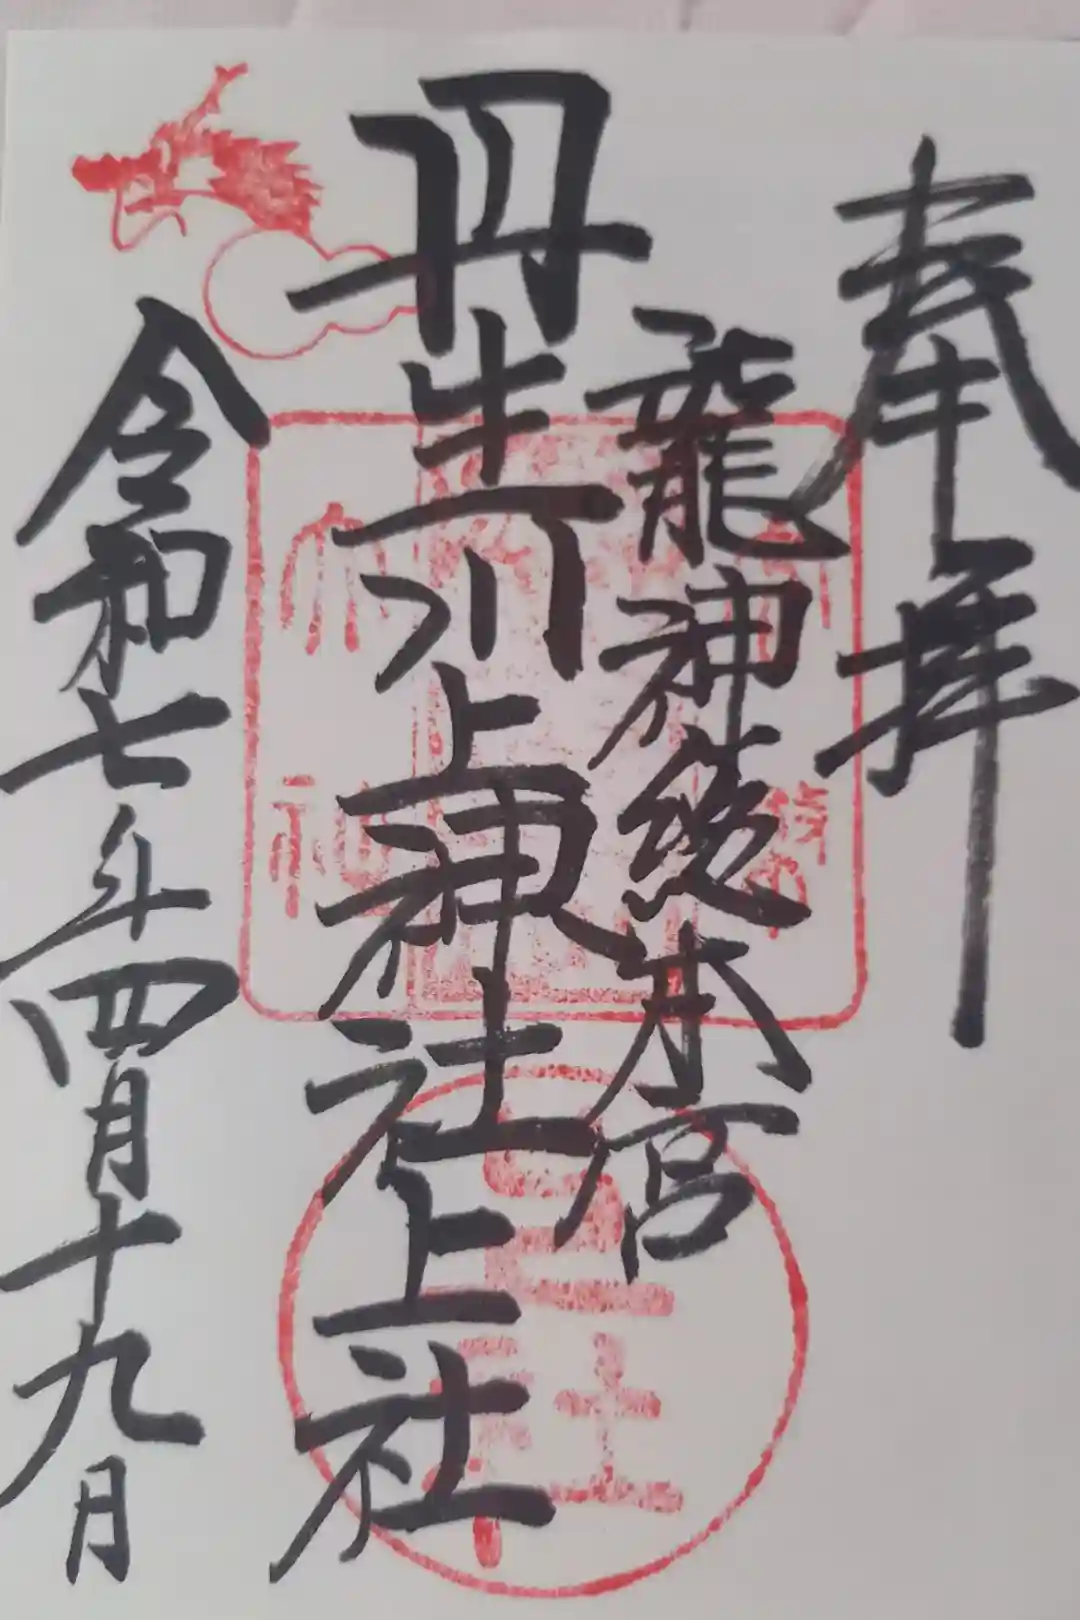 奉拝
龍神総本宮
丹生川上神社上社
令和七年四月十九日
上社